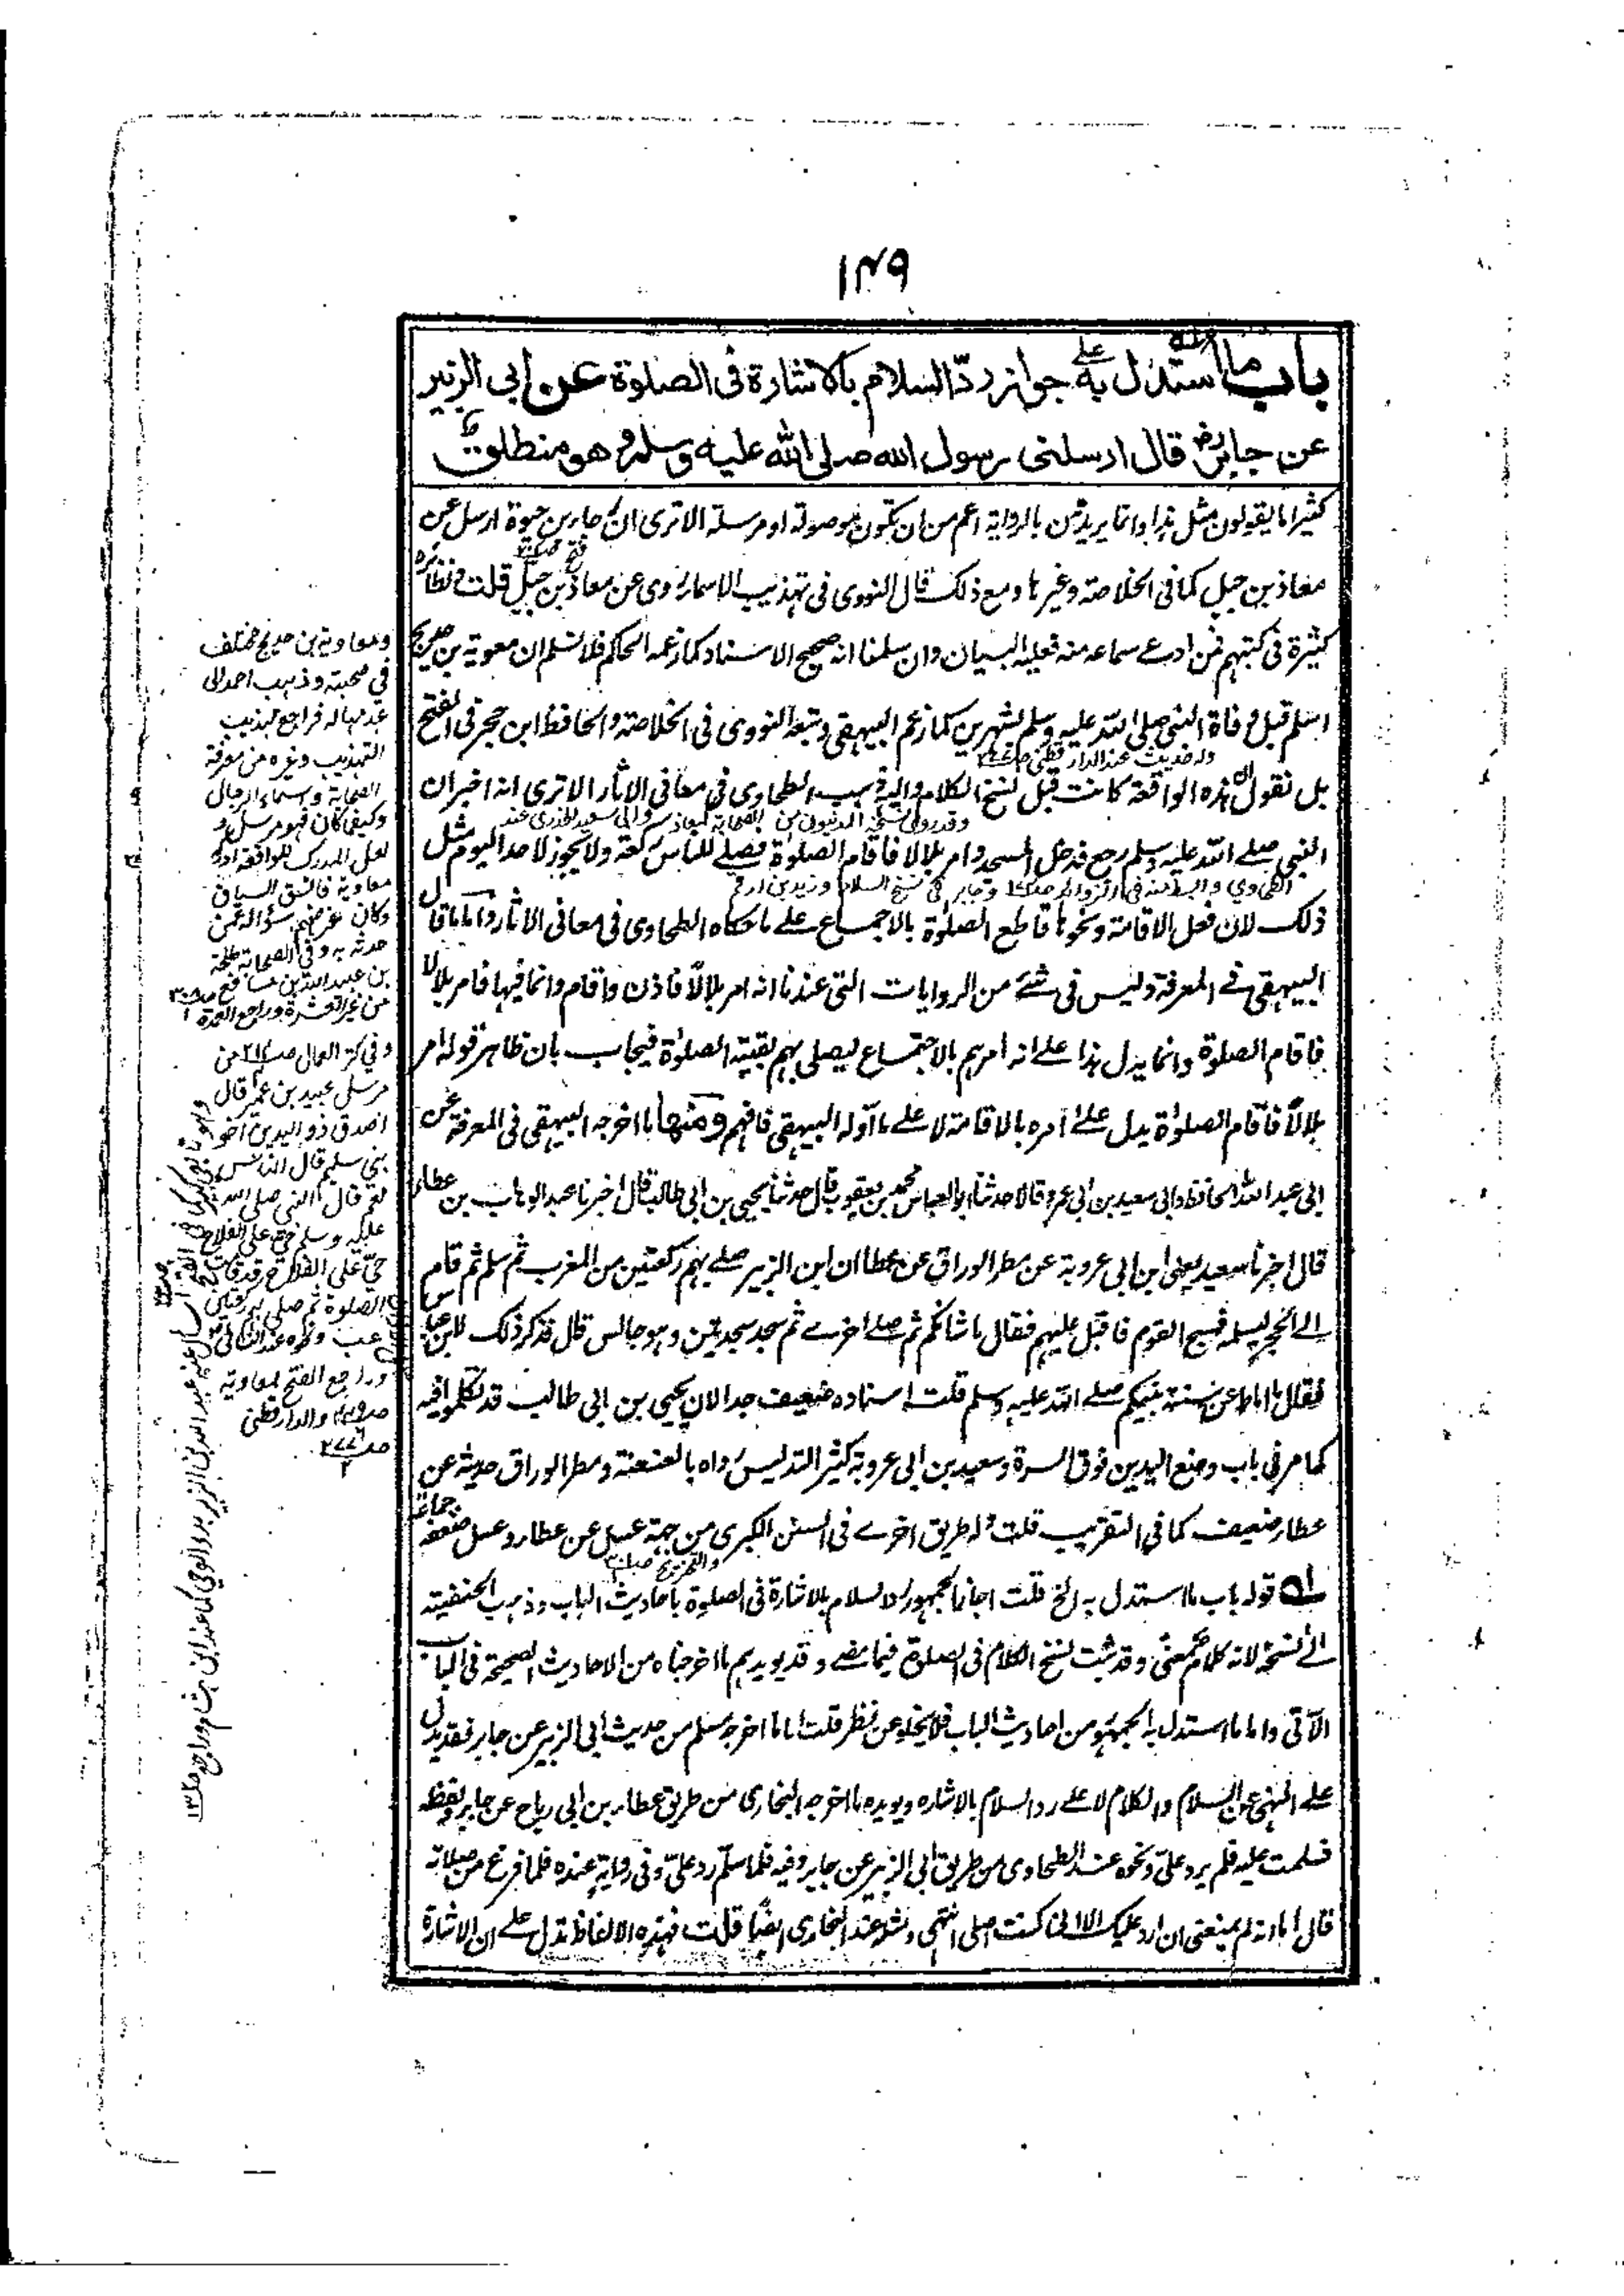 ١٤٩
باب ما استدل به على جواز رد السلام بالاشارة فى الصلوة عن ابى الزبير
عن جابر رض قال ارسلنى رسول الله صلى الله عليه وسلم وهو منطلق
كثيرا ما يقولون مثل هذا وانما يريدون بالرواية اعم من ان تكون موصولة او مرسلة الا ترى ان رجاء بن حيوة ارسل عن
معاذ بن جبل كما فى الخلاصة وغيرها ومع ذلك قال النووى فى تهذيب الاسماء روى عن معاذ بن جبل قلت ونظائره
كثيرة فى كتبهم فمن ادعى سماعه منه فعليه البيان وان سلمنا انه صحيح الاسناد كما زعمه الحاكم فلا نسلم ان معوية بن حديج
اسلم قبل وفاة النبى صلى الله عليه وسلم بشهرين كما زعم البيهقى وتبعه النووى فى الخلاصة والحافظ ابن حجر فى الفتح
وله حديث عند الدارقطنى
بل نقول ان هذه الواقعة كانت قبل نسخ الكلام واليه ذهب الطحاوى فى معانى الاثار الا ترى انه اخبر ان
النبى صلى الله عليه وسلم رجع فدخل المسجد وامر بلالا فاقام الصلوة فصلى للناس ركعة ولا يجوز لاحد اليوم مثل
ذلك لان فعل الاقامة ونحوها قاطع الصلوة بالاجماع على ما حكاه الطحاوى فى معانى الاثار واما ما قال
البيهقى فى المعرفة وليس فى شئ من الروايات التى عندنا انه امر بلالا فاذن واقام وانما فيها فامر بلالا
فاقام الصلوة وانما يدل هذا على انه امرهم بالاجتماع ليصلى بهم بقية الصلوة فيجاب بان ظاهر قوله امر
بلالا فاقام الصلوة يدل على امره بالاقامة لا على ما اوله البيهقى فافهم ومنها ما اخرجه البيهقى فى المعرفة عن
ابى عبد الله الحافظ وابى سعيد بن ابى عمرو قالا حدثنا ابو العباس محمد بن يعقوب قال حدثنا يحيى بن ابى طالب قال اخبرنا عبد الوهاب بن عطاء
قال اخبرنا سعيد يعنى ابن ابى عروبة عن مطر الوراق عن عطا ان ابن الزبير صلى بهم ركعتين من المغرب ثم سلم ثم قام
الى الحجر ليستلمه فسبح القوم فاقبل عليهم فقال ما شانكم ثم صلى اخرى ثم سجد سجدتين وهو جالس قال فذكر ذلك لابن عباس
فقال ما اماط عن سنة نبيكم صلى الله عليه وسلم قلت اسناده ضعيف جدا لان يحيى بن ابى طالب قد تكلموا فيه
كما مر فى باب وضع اليدين فوق السرة وسعيد بن ابى عروبة كثير التدليس رواه بالعنعنة ومطر الوراق حديثه عن
عطاء ضعيف كما فى التقريب قلت وله طريق اخرى فى السنن الكبرى من جهة عسل عن عطاء وعسل ضعفه جماعة
قوله باب ما استدل به الخ قلت اجاز الجمهور رد السلام بالاشارة فى الصلوة باحاديث الباب وذهب الحنفية
الى نسخه لانه كلام معنى وقد ثبت نسخ الكلام فى الصلوة فيما مضى وقد يويدهم ما اخرجناه من الاحاديث الصحيحة فى الباب
الآتى واما ما استدل به الجمهور من احاديث الباب فلا يخلو عن نظر قلت اما ما اخرجه مسلم من حديث ابى الزبير عن جابر فقد يدل
على النهى عن السلام والكلام لا على رد السلام بالاشارة ويويده ما اخرجه البخارى من طريق عطاء بن ابى رباح عن جابر ولفظه
فسلمت عليه فلم يرد على ونحوه عند الطحاوى من طريق ابى الزبير عن جابر وفيه فلما سلم رد على وفى رواية عنده فلما فرغ من صلاته
قال اما انه لم يمنعنى ان ارد عليك الا انى كنت اصلى انتهى ومثله عند البخارى ايضا قلت فهذه الالفاظ تدل على ان الاشارة
ومعاوية بن حديج مختلف
فى صحبته وذهب احمد الى
عدمها له فراجع تهذيب
التهذيب وغيره من معرفة
الصحابة واسماء الرجال
وكيف كان فهو مرسل
وكان غرضهم سؤاله عمن
وفى كنز العمال من
مرسل عبيد بن عمير قال
اصدق ذو اليدين اخو
بنى سليم قال الناس
نعم قال النبى صلى الله
عليه وسلم حى على الفلاح
حى على الفلاح قد قامت
الصلوة ثم صلى بهم ركعتين
وراجع الفتح لمعاوية
والدارقطنى